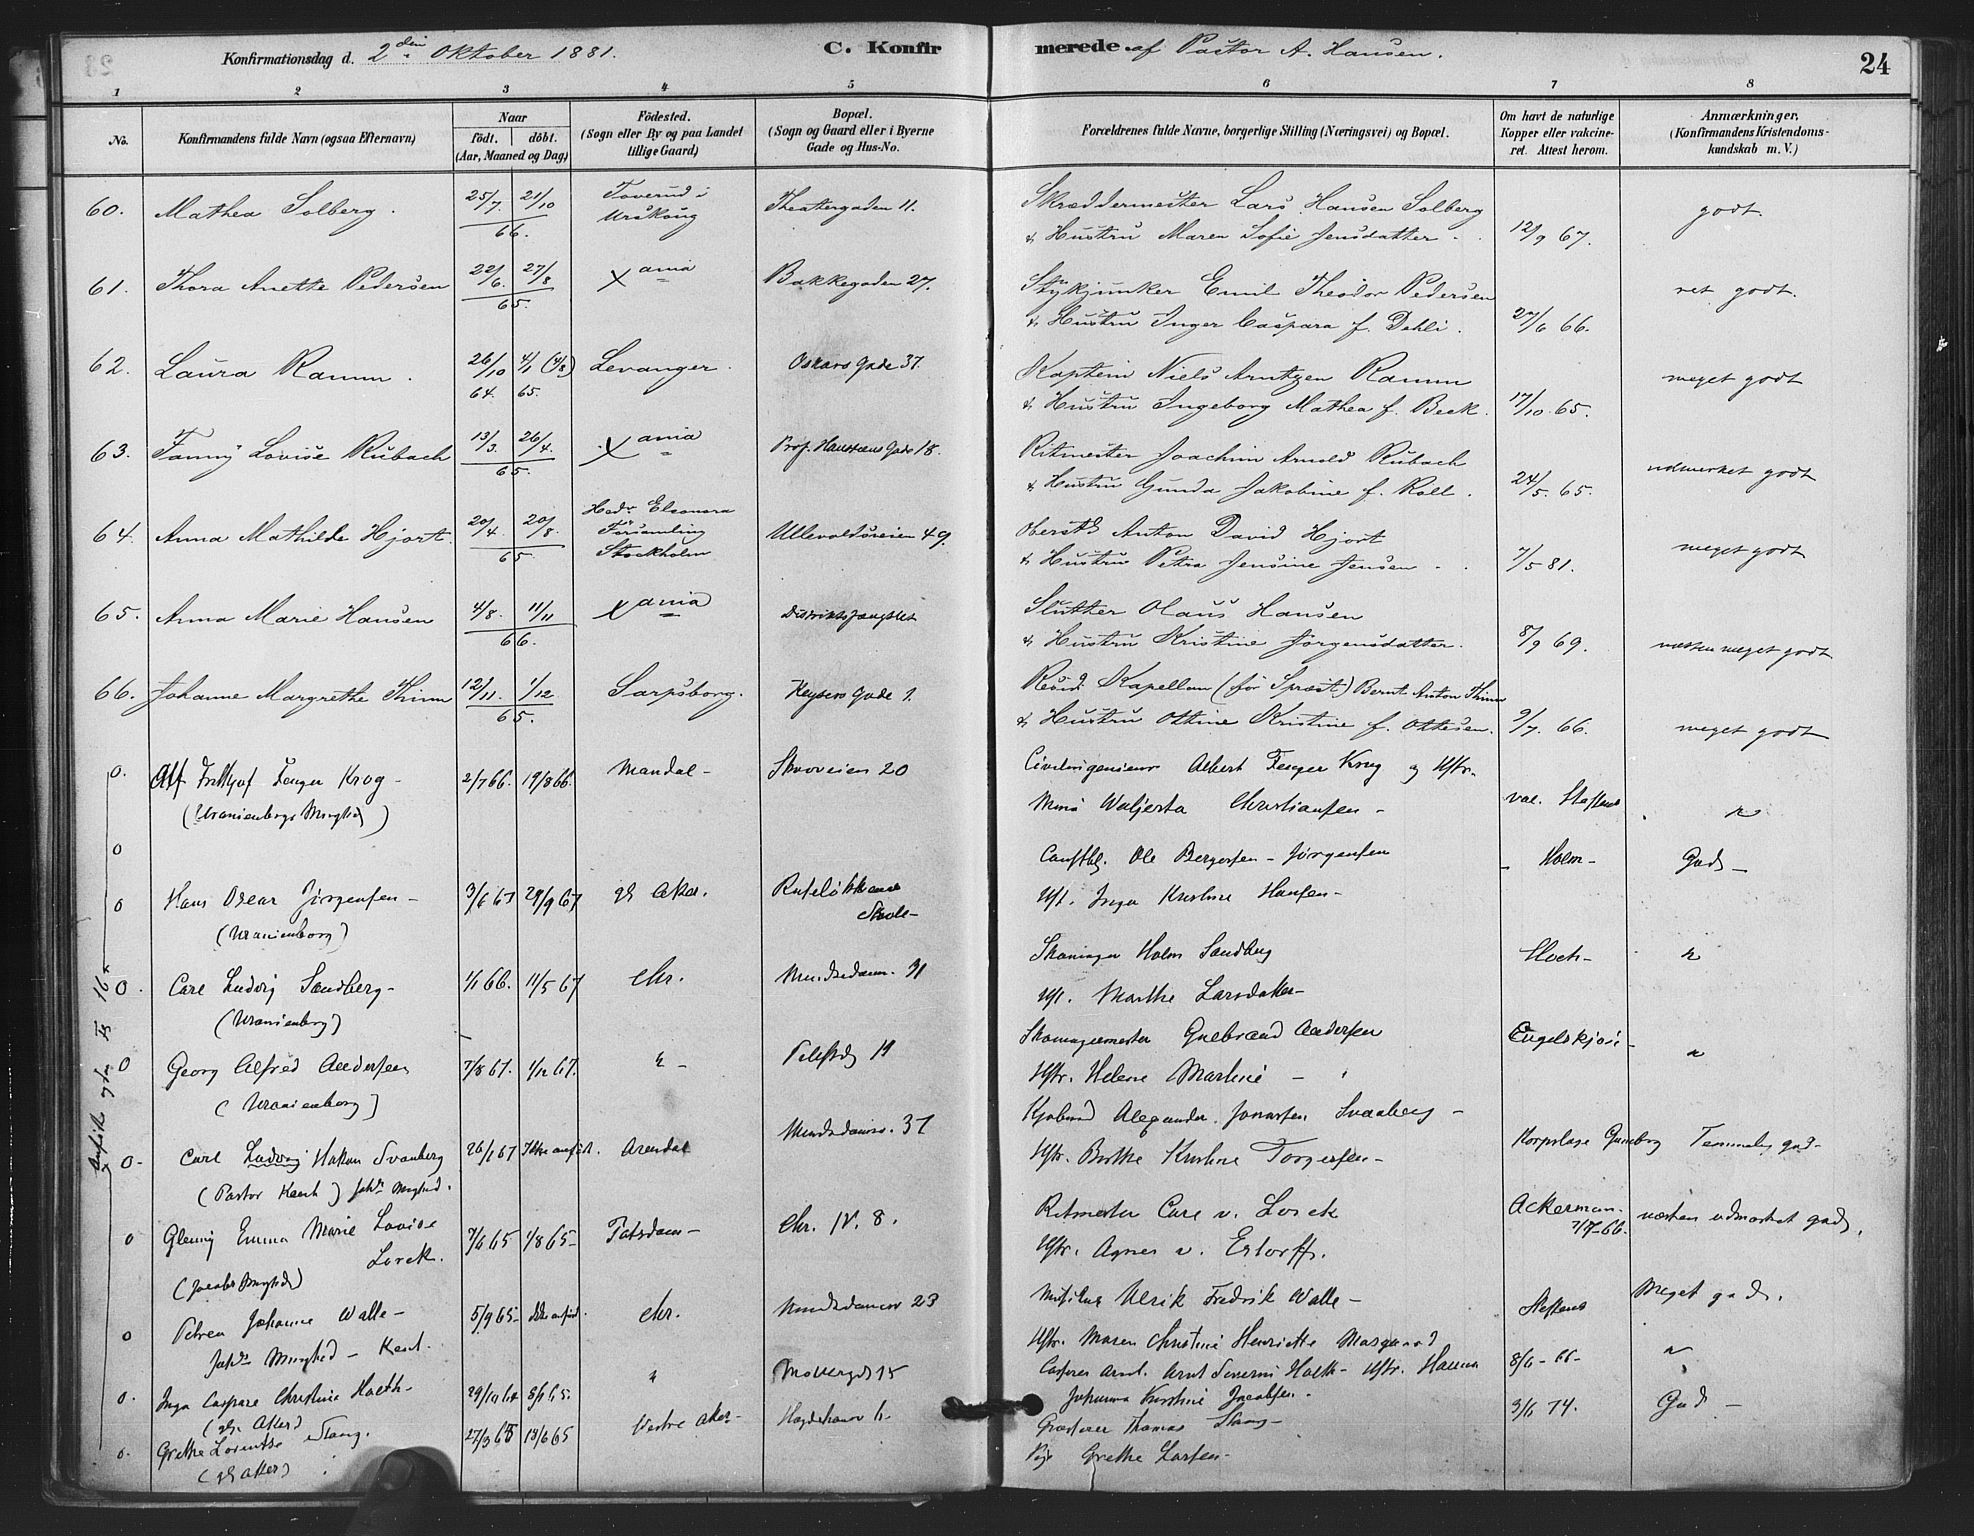 Konfirmationsdag d. 2den Oktober 1881. C. Konfir merede af Pastor A. Hansen. 24
1 2 3 4 5 6 7 8
No. Konfirmandens fulde Navn (ogsaa Efternavn) Naar födt. döbt. (Aar, Maaned og Dag) Födested. (Sogn eller By og paa Landet tillige Gaard) Bopæl. (Sogn og Gaard eller i Byerne Gade og Hus-No. Forældrenes fulde Navne, borgerlige Stilling (Næringsvei) og Bopæl. Om havt de naturlige Kopper eller vakcineret. Attest herom. Anmærkninger. (Konfirmandens Kristendomskundskab m. V.)
60. Mathea Solberg. 25/7. 21/10 66. Toverud i Urskoug Theatergaden 11. Skræddermester Lars Hansen Solberg
& Hustru Maren Sofie Jensdatter. 12/9 67. godt.
61. Thora Anette Pedersen 22/6. 27/8 65. Xania Bakkegaden 27. Stykjunker Emil Theodor Pedersen
& Hustru Inger Caspara f. Dehli. 27/6 66. ret godt.
62. Laura Ramm. 26/10 64. 4/1 65. Levanger. Oskars Gade 37. Kaptein Niels Arntzen Ramm
& Hustru Ingeborg Mathea f. Beck. 17/10 65. meget godt
63. Fanny Lovise Rubach 13/3. 26/4. 65. Xania Prof. Hansteens Gade 18. Ritmester Joachim Arnold Rubach
& Hustru Gunda Jakobine f. Roll. 24/5. 65. udmerket godt
64. Anna Mathilde Hjort. 20/4. 20/8. 65 Hedv. Eleonora Församling Stockholm Ullevoldsveien 49. Oberstl Anton David Hjort
& Hustru Petra Jensine Jensen. 7/5 81. meget godt
65. Anna Marie Hansen 4/8. 11/11 66. Xania Distriktsfængslet Slutter Olaus Hansen
& Hustru Kristine Jörgensdatter. 8/9 69. næsten meget godt
66. Johanne Margrethe Thinn 12/11. 1/12 65. Sarpsborg. Keysers Gade 1. Resid. Kapellan (för Sprest) Bernt Anton Thinn
& Hustru Ottine Kristine f. Ottesen. 9/7. 66. meget godt
0. Alf Fritthjof Fenger Krog - 2/7 66. 19/8 66. Mandal - Skovveien 20 Civilingeniør Albert Fenger Krog og Hstr.
(Uranienborgs Menighed) Christiansen - vac. Steffens
0 Ole Bergersen - Jørgensen Holm - Godt -
0 Hans Oscar Jørgensen - 3/6 67 29/9 67 gl Aker. Ruseløkkens Skole - Hst. Inga Kristine Hansen -
(Uranienborg)
0. Carl Ludvig Sandberg - 1/1 66. 11/5 67 Chr. Munkedamsv. 31 Holm Sandberg
(Uranienborg) Hst. Marthe Larsdatter -
0 Georg Alfred Andersen 7/8 67. 1/12 67. Pilestr. 19 Skomagermester Gulbrand Andersen
(Uranienborg) Hstr. Helene Martine -
0- Carl Ludvig Hakan Svanberg 26/1 67 Ikke anført. Arendal Munkedamsv. 37 Alexander Svanberg -
(Pastor Kent) Joh. Menighed. Hstr. Berthe Kristine Torgersen -
0 Glenny Emma Marie Lovise Lorck. 7/6 65 1/8 65 - Potsdam - Chr. IV. 8. Ritmester Carl v. Lorck Ackerman. næsten udmærket godt.
(Jacobs Menighed) Hstr. Agnes v. Estorff.
0 Petrea Johanne Walle - 5/9 65 - Ikke anført. Chr. Munkedamsv 23 Ulrik Fredrik Walle - Steffens Meget godt.
Joh. Menighed - Kent. Hstr. Maren Christine Henriette
0. Inga Caspare Christine Hoeth - 29/10 64 8/1 65. Møllergd 15 Arnt Severin Hoeth - Hstr. Hanna 8/6 - 66 -
(gl. Aker) Johanna Kirstine Jacobsen -
0. Grethe Lorentze Stang. 27/3 65 18/6 65 Vestre Aker - Thomas Stang - 3/6 74. Godt -
(gl Aker) Pige Grethe Larsen -